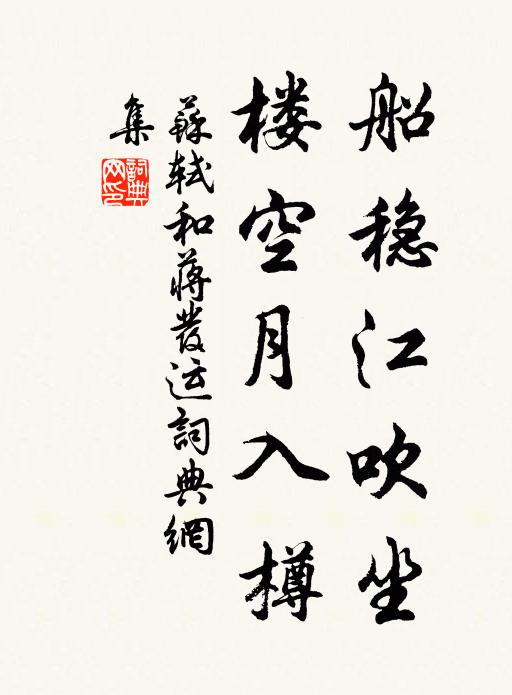 船稳江吹坐
楼空月入樽
蘇軾和蔣發运詞典網
集
詞典网印